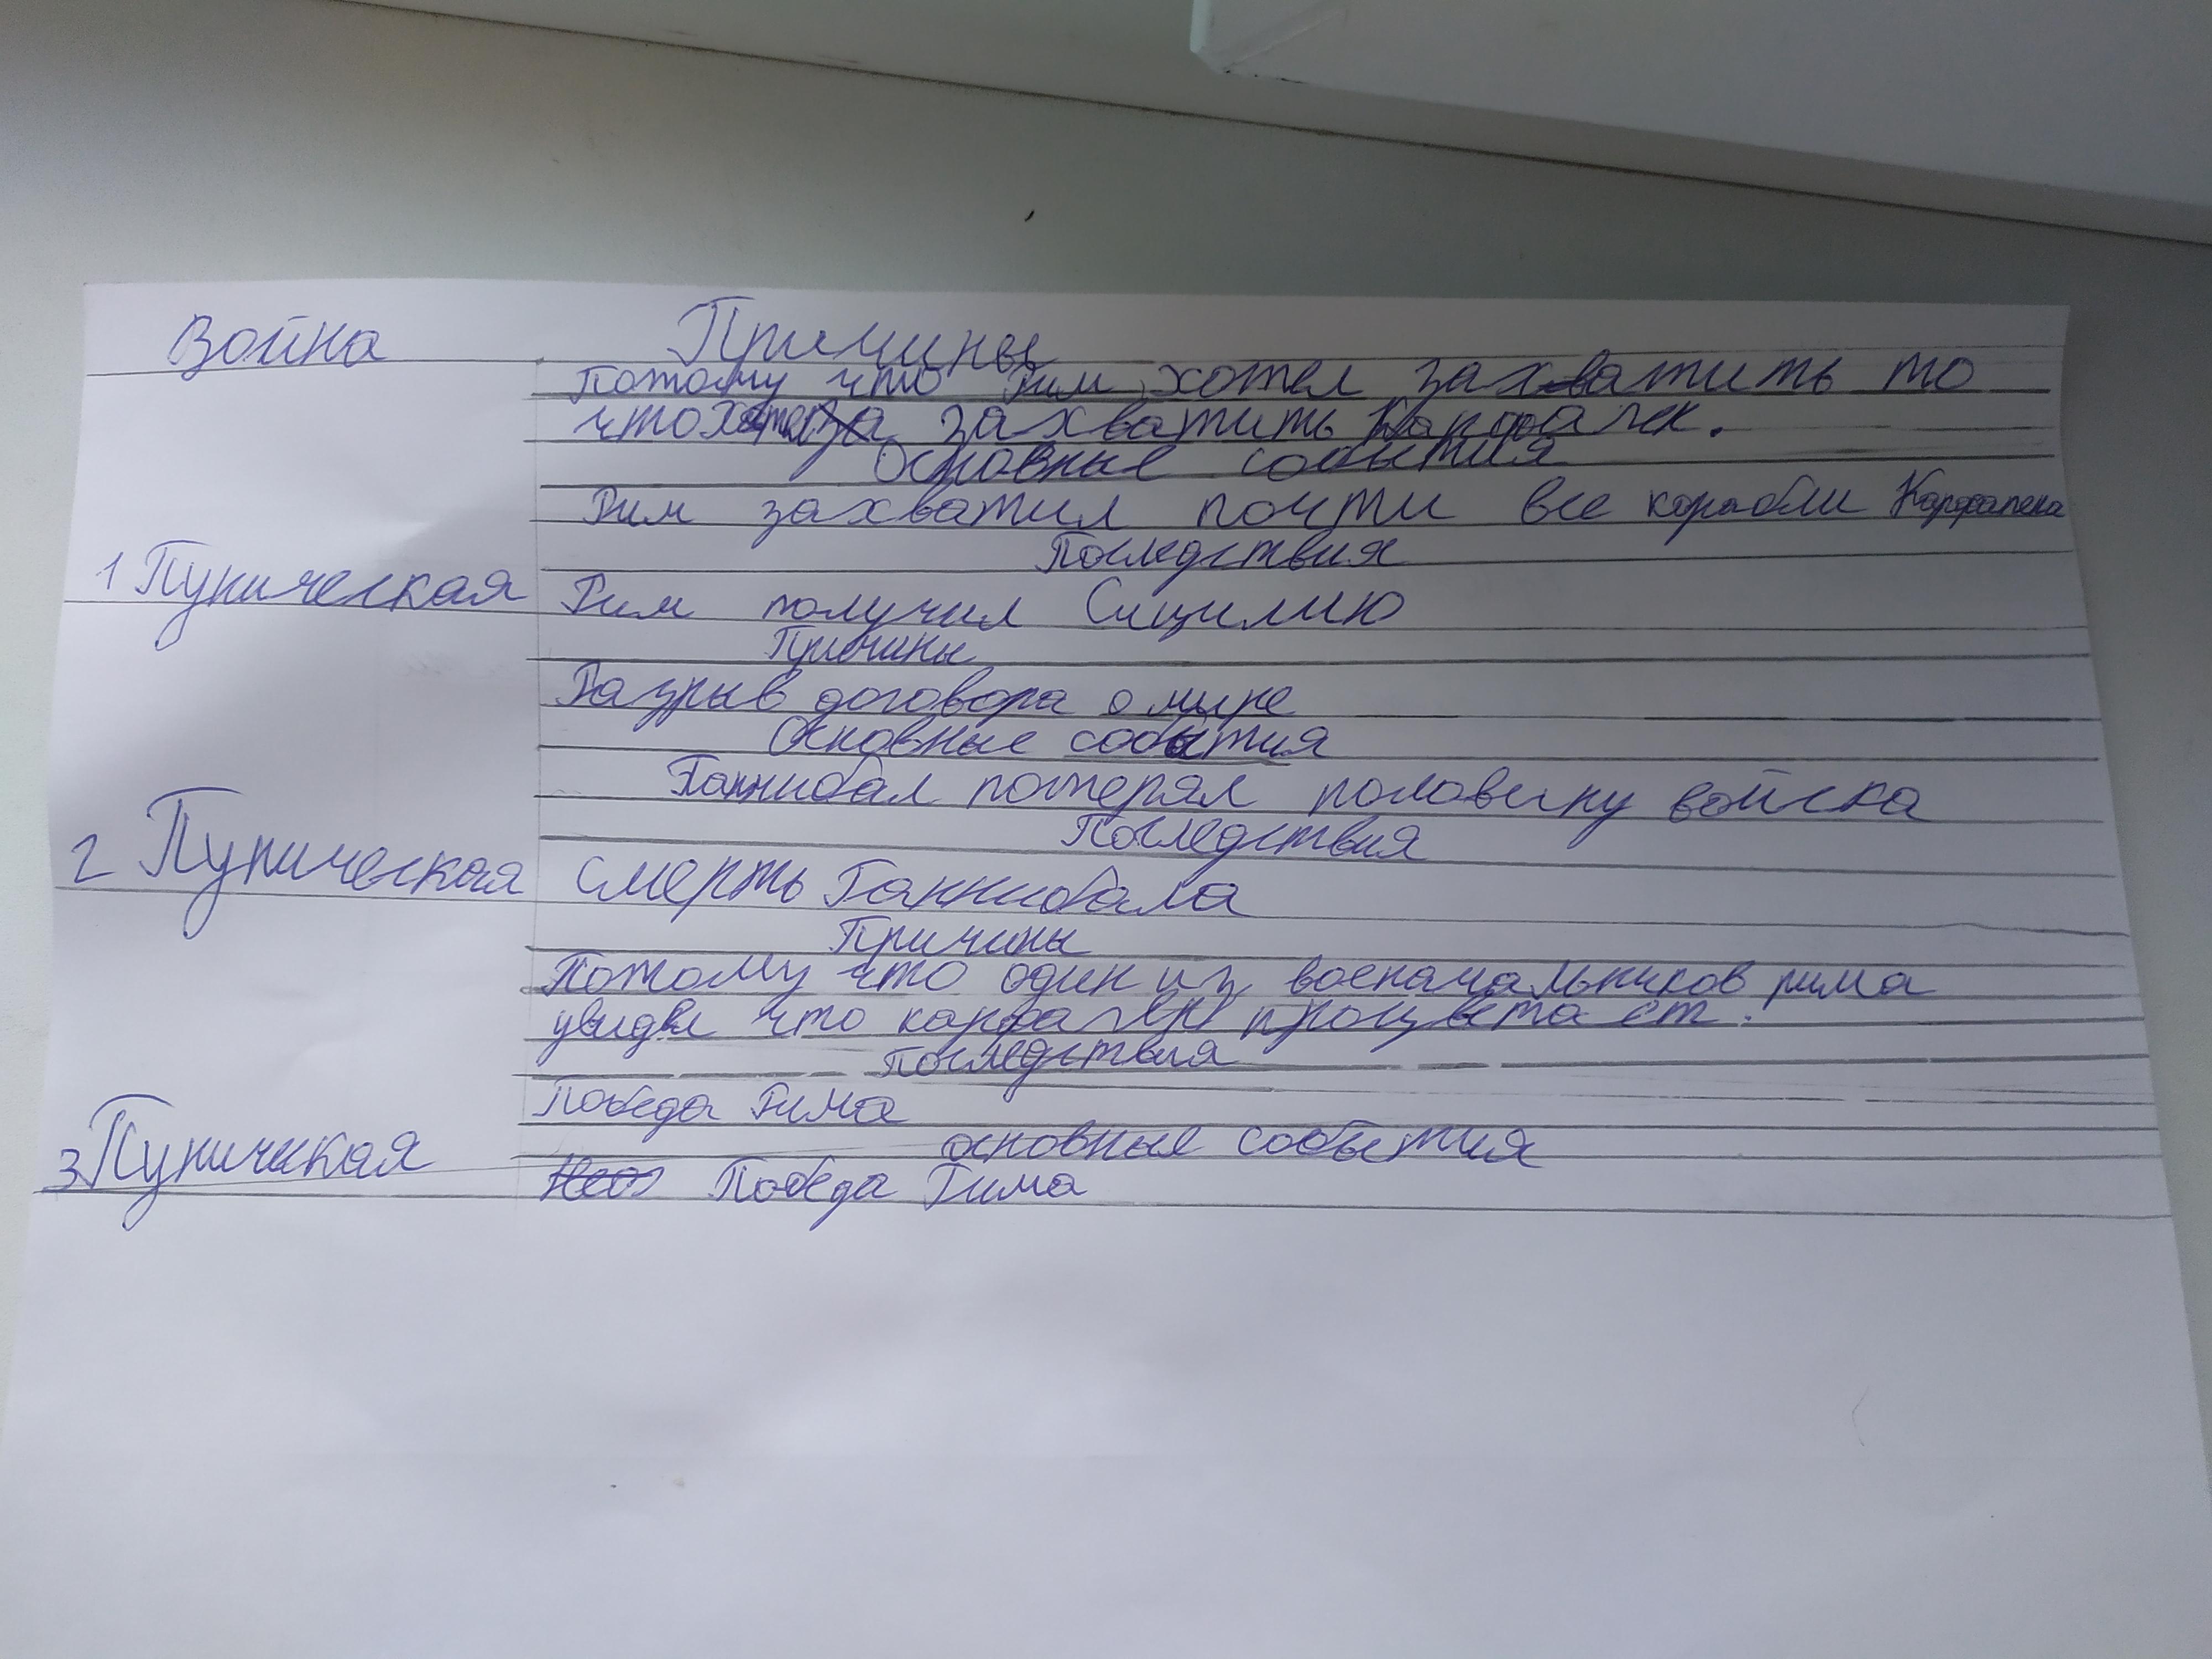 Война Причины
Потому что Рим хотел захватить то
что захватить Карфаген.
Основные события
Рим захватил почти все корабли Карфагена
Последствия
1 Пуническая Рим получил Сицилию
Причины
Разрыв договора о мире
Основные события
Ганнибал потерял половину войска
Последствия
2 Пуническая Смерть Ганнибала
Причины
Потому что один из военачальников рима
увидел что карфаген процветает.
Последствия
Победа Рима
основные события
3 Пуническая Победа Рима